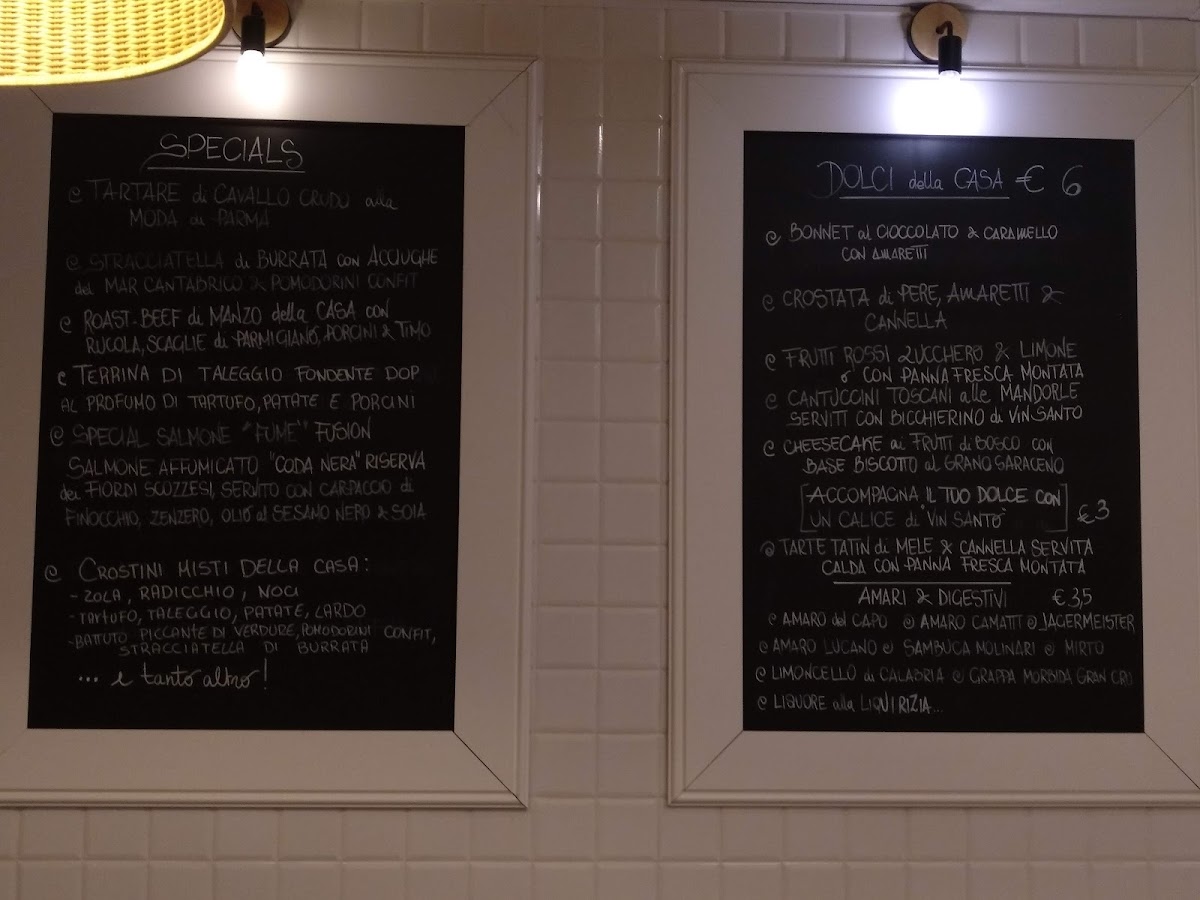 SPECIALS
TARTARE di CAVALLO CRUDO alla
MODA di PARMA
STRACCIATELLA di BURRATA con ACCIUGHE
del MAR CANTABRICO & POMODORINI CONFIT
ROAST-BEEF di MANZO della CASA con
RUCOLA, SCAGLIE di PARMIGIANO, PORCINI & TIMO
TERRINA DI TALEGGIO FONDENTE DOP
AL PROFUMO DI TARTUFO, PATATE E PORCINI
SPECIAL SALMONE "FUME'" FUSION
SALMONE AFFUMICATO "CODA NERA" RISERVA
dei FIORDI SCOZZESI, SERVITO CON CARPACCIO di
FINOCCHIO, ZENZERO, OLIO al SESAMO NERO & SOIA
CROSTINI MISTI DELLA CASA:
- ZOLA, RADICCHIO, NOCI
- TARTUFO, TALEGGIO, PATATE, LARDO
- BATTUTO PICCANTE DI VERDURE, POMODORINI CONFIT,
STRACCIATELLA DI BURRATA
... e tanto altro!
DOLCI della CASA € 6
BONNET al CIOCCOLATO & CARAMELLO
CON AMARETTI
CROSTATA di PERE, AMARETTI &
CANNELLA
FRUTTI ROSSI ZUCCHERO & LIMONE
o CON PANNA FRESCA MONTATA
CANTUCCINI TOSCANI alle MANDORLE
SERVITI CON BICCHIERINO di VIN SANTO
CHEESECAKE ai FRUTTI di BOSCO con
BASE BISCOTTO al GRANO SARACENO
[ACCOMPAGNA IL TUO DOLCE CON
UN CALICE di "VIN SANTO"] €3
TARTE TATIN di MELE & CANNELLA SERVITA
CALDA CON PANNA FRESCA MONTATA
AMARI & DIGESTIVI €3,5
AMARO del CAPO AMARO CAMATTI JAGERMEISTER
AMARO LUCANO SAMBUCA MOLINARI MIRTO
LIMONCELLO di CALABRIA GRAPPA MORBIDA GRAN CRU
LIQUORE alla LIQUIRIZIA...